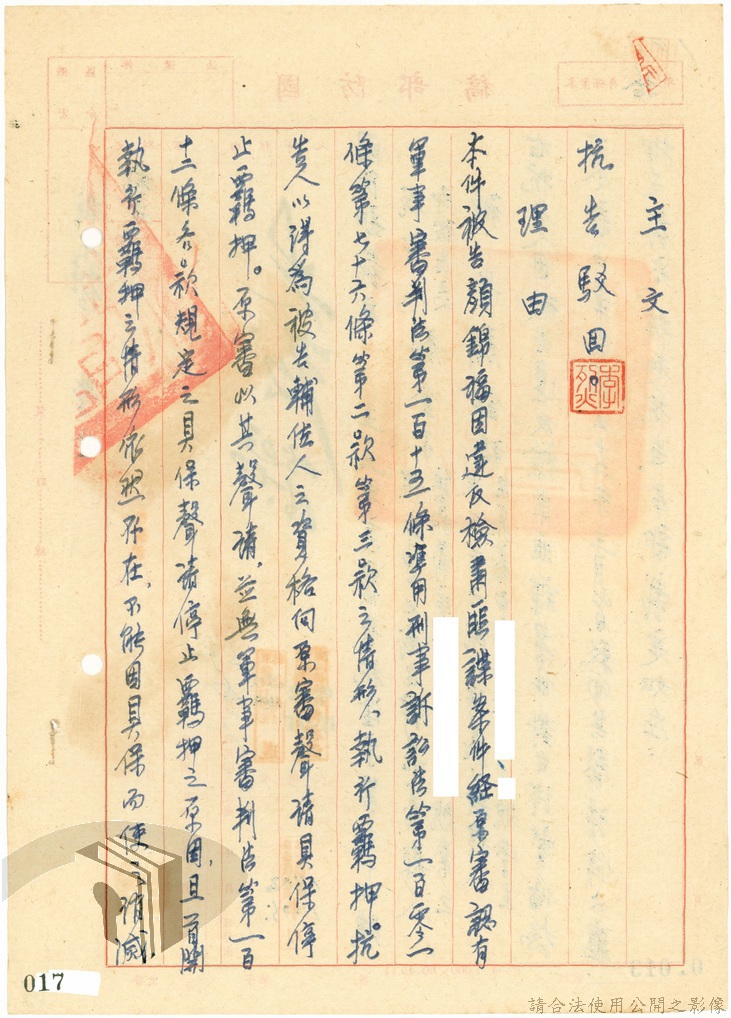 主文
抗告駁回。
理由
本件被告顏錦福因違反檢肅匪諜案件、經原審認有
軍事審判法第一百十五條準用刑事訴訟法第一百零一
條第七十六條第二款第三款之情形、執行羈押。抗
告人以得為被告輔佐人之資格向原審聲請具保停
止羈押。原審以其聲請、並無軍事審判法第一百
十二條各款規定之具保聲請停止羈押之原因、且首開
執行羈押之情形依然存在、不能因具保而使之消滅
017
請合法使用公開之影像